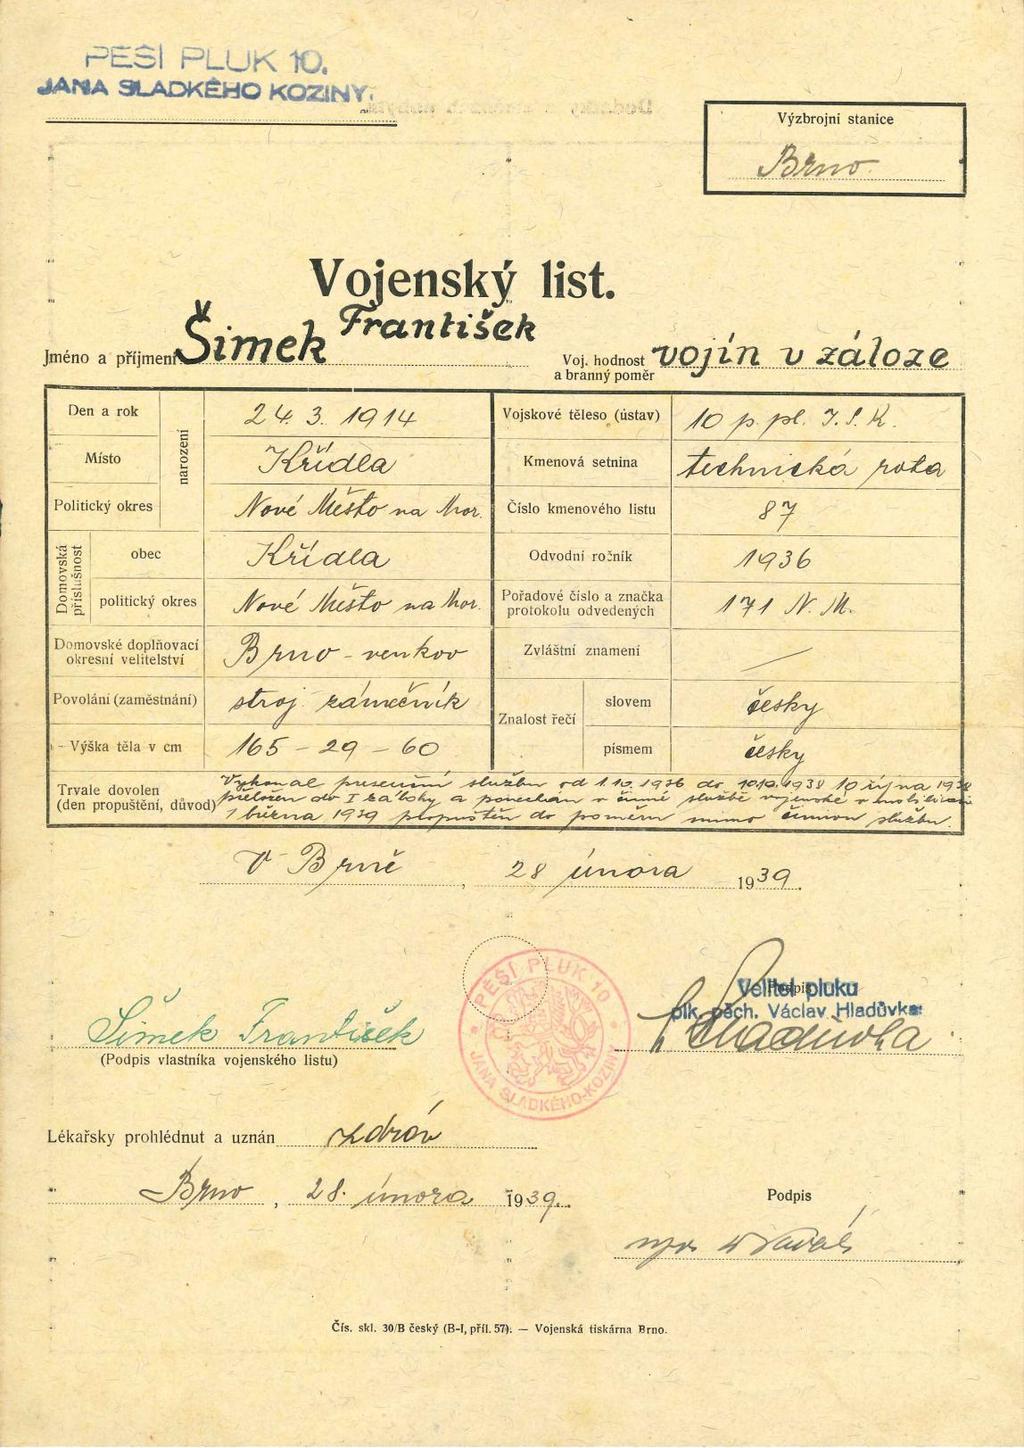 PĚŠÍ PLUK 10.
JANA SLADKÉHO KOZINY.
Výzbrojní stanice
Brno.
Vojenský list.
Jméno a příjmení Šimek František
Voj. hodnost a branný poměr vojín v záloze
Den a rok narození 24. 3. 1914
Místo Křídla
Politický okres Nové Město na Mor.
Domovská příslušnost obec Křídla
politický okres Nové Město na Mor.
Domovské doplňovací okresní velitelství Brno - venkov
Povolání (zaměstnání) stroj. zámečník
Výška těla v cm 165 - 29 - 60
Vojskové těleso (ústav) 10 p. pl. J. S. K.
Kmenová setnina technická rota
Číslo kmenového listu 87
Odvodní ročník 1936
Pořadové číslo a značka protokolu odvedených 171 N. M.
Zvláštní znamení —
Znalost řečí slovem česky
písmem česky
Trvale dovolen (den propuštění, důvod) Vykonal presenční službu od 1.10.1936 do 10.9.1938 10 října 1938
přeložen do I zálohy a ponechán v činné službě vojenské v mobilisaci
1 března 1939 propuštěn do poměru mimo činnou službu.
V Brně, 28 února 1939.
PĚŠÍ PLUK 10
JANA SLADKÉHO-KOZINY
Šimek František
(Podpis vlastníka vojenského listu)
Podpis
Velitel pluku
plk. pěch. Václav Hladůvka:
Hladůvka
Lékařsky prohlédnut a uznán zdráv
Brno, 28. února 1939.
Podpis
Čís. skl. 30/B český (B-I, příl. 57). — Vojenská tiskárna Brno.